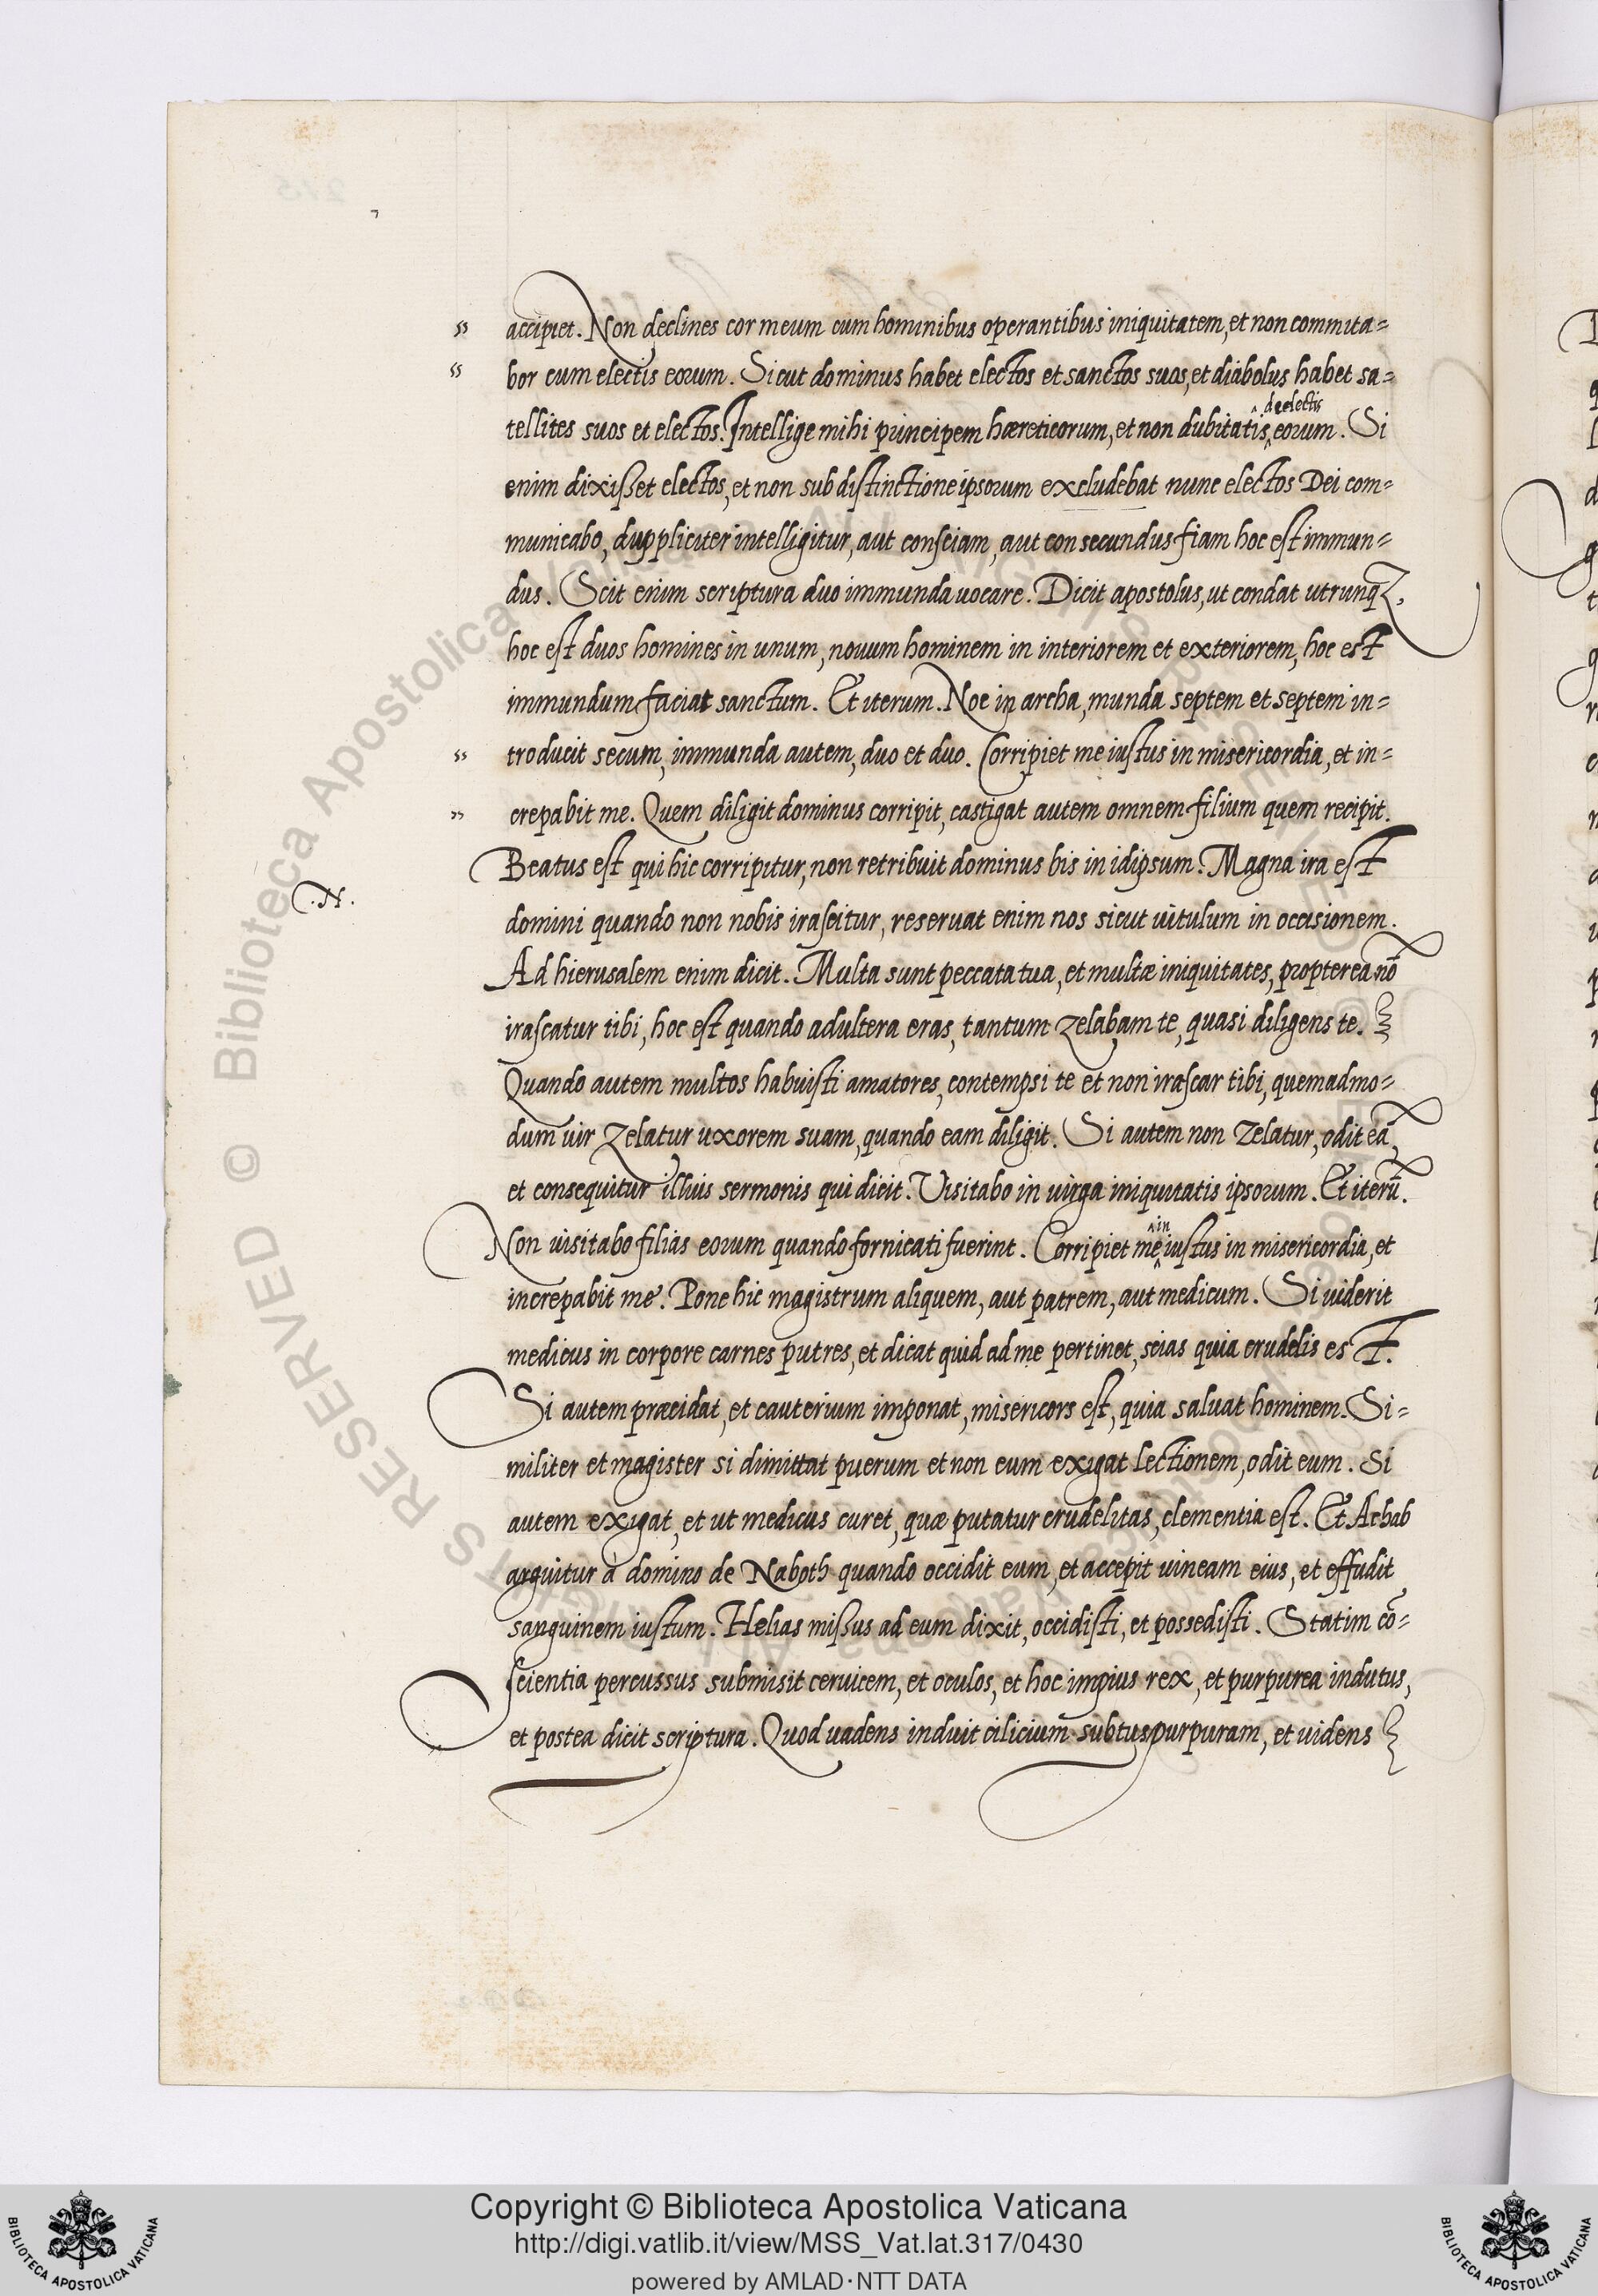 accipiet. Non declines cor meum cum hominibus operantibus iniquitatem, et non commita=
bor cum electis eorum. Sicut dominus habet electos et sanctos suos, et diabolus habet sa=
tellites suos et electos. Intellige mihi principem hæreticorum, et non dubitatis de electis eorum. Si
enim dixisset electos, et non sub distinctione ipsorum excludebat nunc electos Dei com=
municabo, duppliciter intelligitur, aut consciam, aut con secundus fiam hoc est immun=
dus. Scit enim scriptura duo immunda uocare. Dicit apostolus, ut condat utrunqz,
hoc est duos homines in unum, nouum hominem in interiorem et exteriorem, hoc est
immundum faciat sanctum. Et iterum. Noe in archa, munda septem et septem in=
troducit secum, immunda autem, duo et duo. Corripiet me iustus in misericordia, et in=
crepabit me. Quem diligit dominus corripit, castigat autem omnem filium quem recipit.
Beatus est qui hic corripitur, non retribuit dominus bis in idipsum. Magna ira est
.N.
domini quando non nobis irascitur, reseruat enim nos sicut uitulum in occisionem.
Ad hierusalem enim dicit. Multa sunt peccata tua, et multæ iniquitates, propterea nõ
irascatur tibi, hoc est quando adultera eras, tantum zelabam te, quasi diligens te.
Quando autem multos habuisti amatores, contempsi te et non irascar tibi, quemadmo=
dum uir zelatur uxorem suam, quando eam diligit. Si autem non zelatur, odit eã,
et consequitur illius sermonis qui dicit. Visitabo in uirga iniquitatis ipsorum. Et iterũ.
Non uisitabo filias eorum quando fornicati fuerint. Corripiet me in iustus in misericordia, et
increpabit me. Pone hic magistrum aliquem, aut patrem, aut medicum. Si uiderit
medicus in corpore carnes putres, et dicat quid ad me pertinet, scias quia crudelis est.
Si autem præcidat, et cauterium imponat, misericors est, quia saluat hominem. Si=
militer et magister si dimittat puerum et non eum exigat lectionem, odit eum. Si
autem exigat, et ut medicus curet, quæ putatur crudelitas, clementia est. Et Achab
arguitur à domino de Naboth quando occidit eum, et accepit uineam eius, et effudit
sanguinem iustum. Helias missus ad eum dixit, occidisti, et possedisti. Statim cõ=
scientia percussus submisit ceruicem, et oculos, et hoc impius rex, et purpurea indutus,
et postea dicit scriptura. Quod uadens induit cilicium subtus purpuram, et uidens
Copyright © Biblioteca Apostolica Vaticana
http://digi.vatlib.it/view/MSS_Vat.lat.317/0430
powered by AMLAD·NTT DATA
BIBLIOTECA APOSTOLICA VATICANA
BIBLIOTECA APOSTOLICA VATICANA